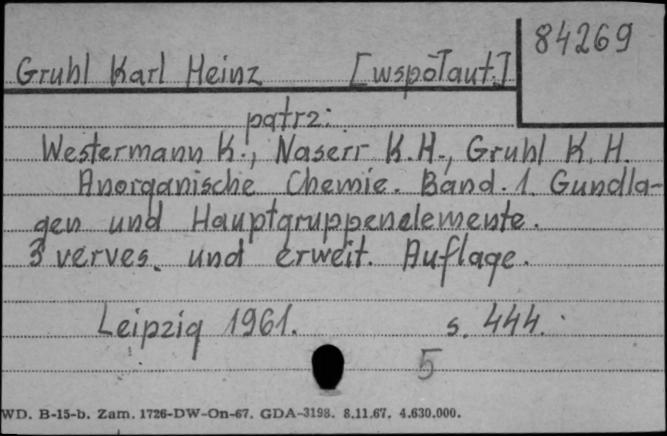 84269
Gruhl Karl Heinz [współaut.]
patrz:
Westermann K., Naserr K.H., Gruhl K.H.
Anorganische Chemie. Band. 1. Gundla-
gen und Hauptgruppenelemente.
3 verves. und erweit. Auflage.
Leipzig 1961. s. 444.
5
WD. B-15-b. Zam. 1726-DW-On-67. GDA-3198. 8.11.67. 4.630.000.